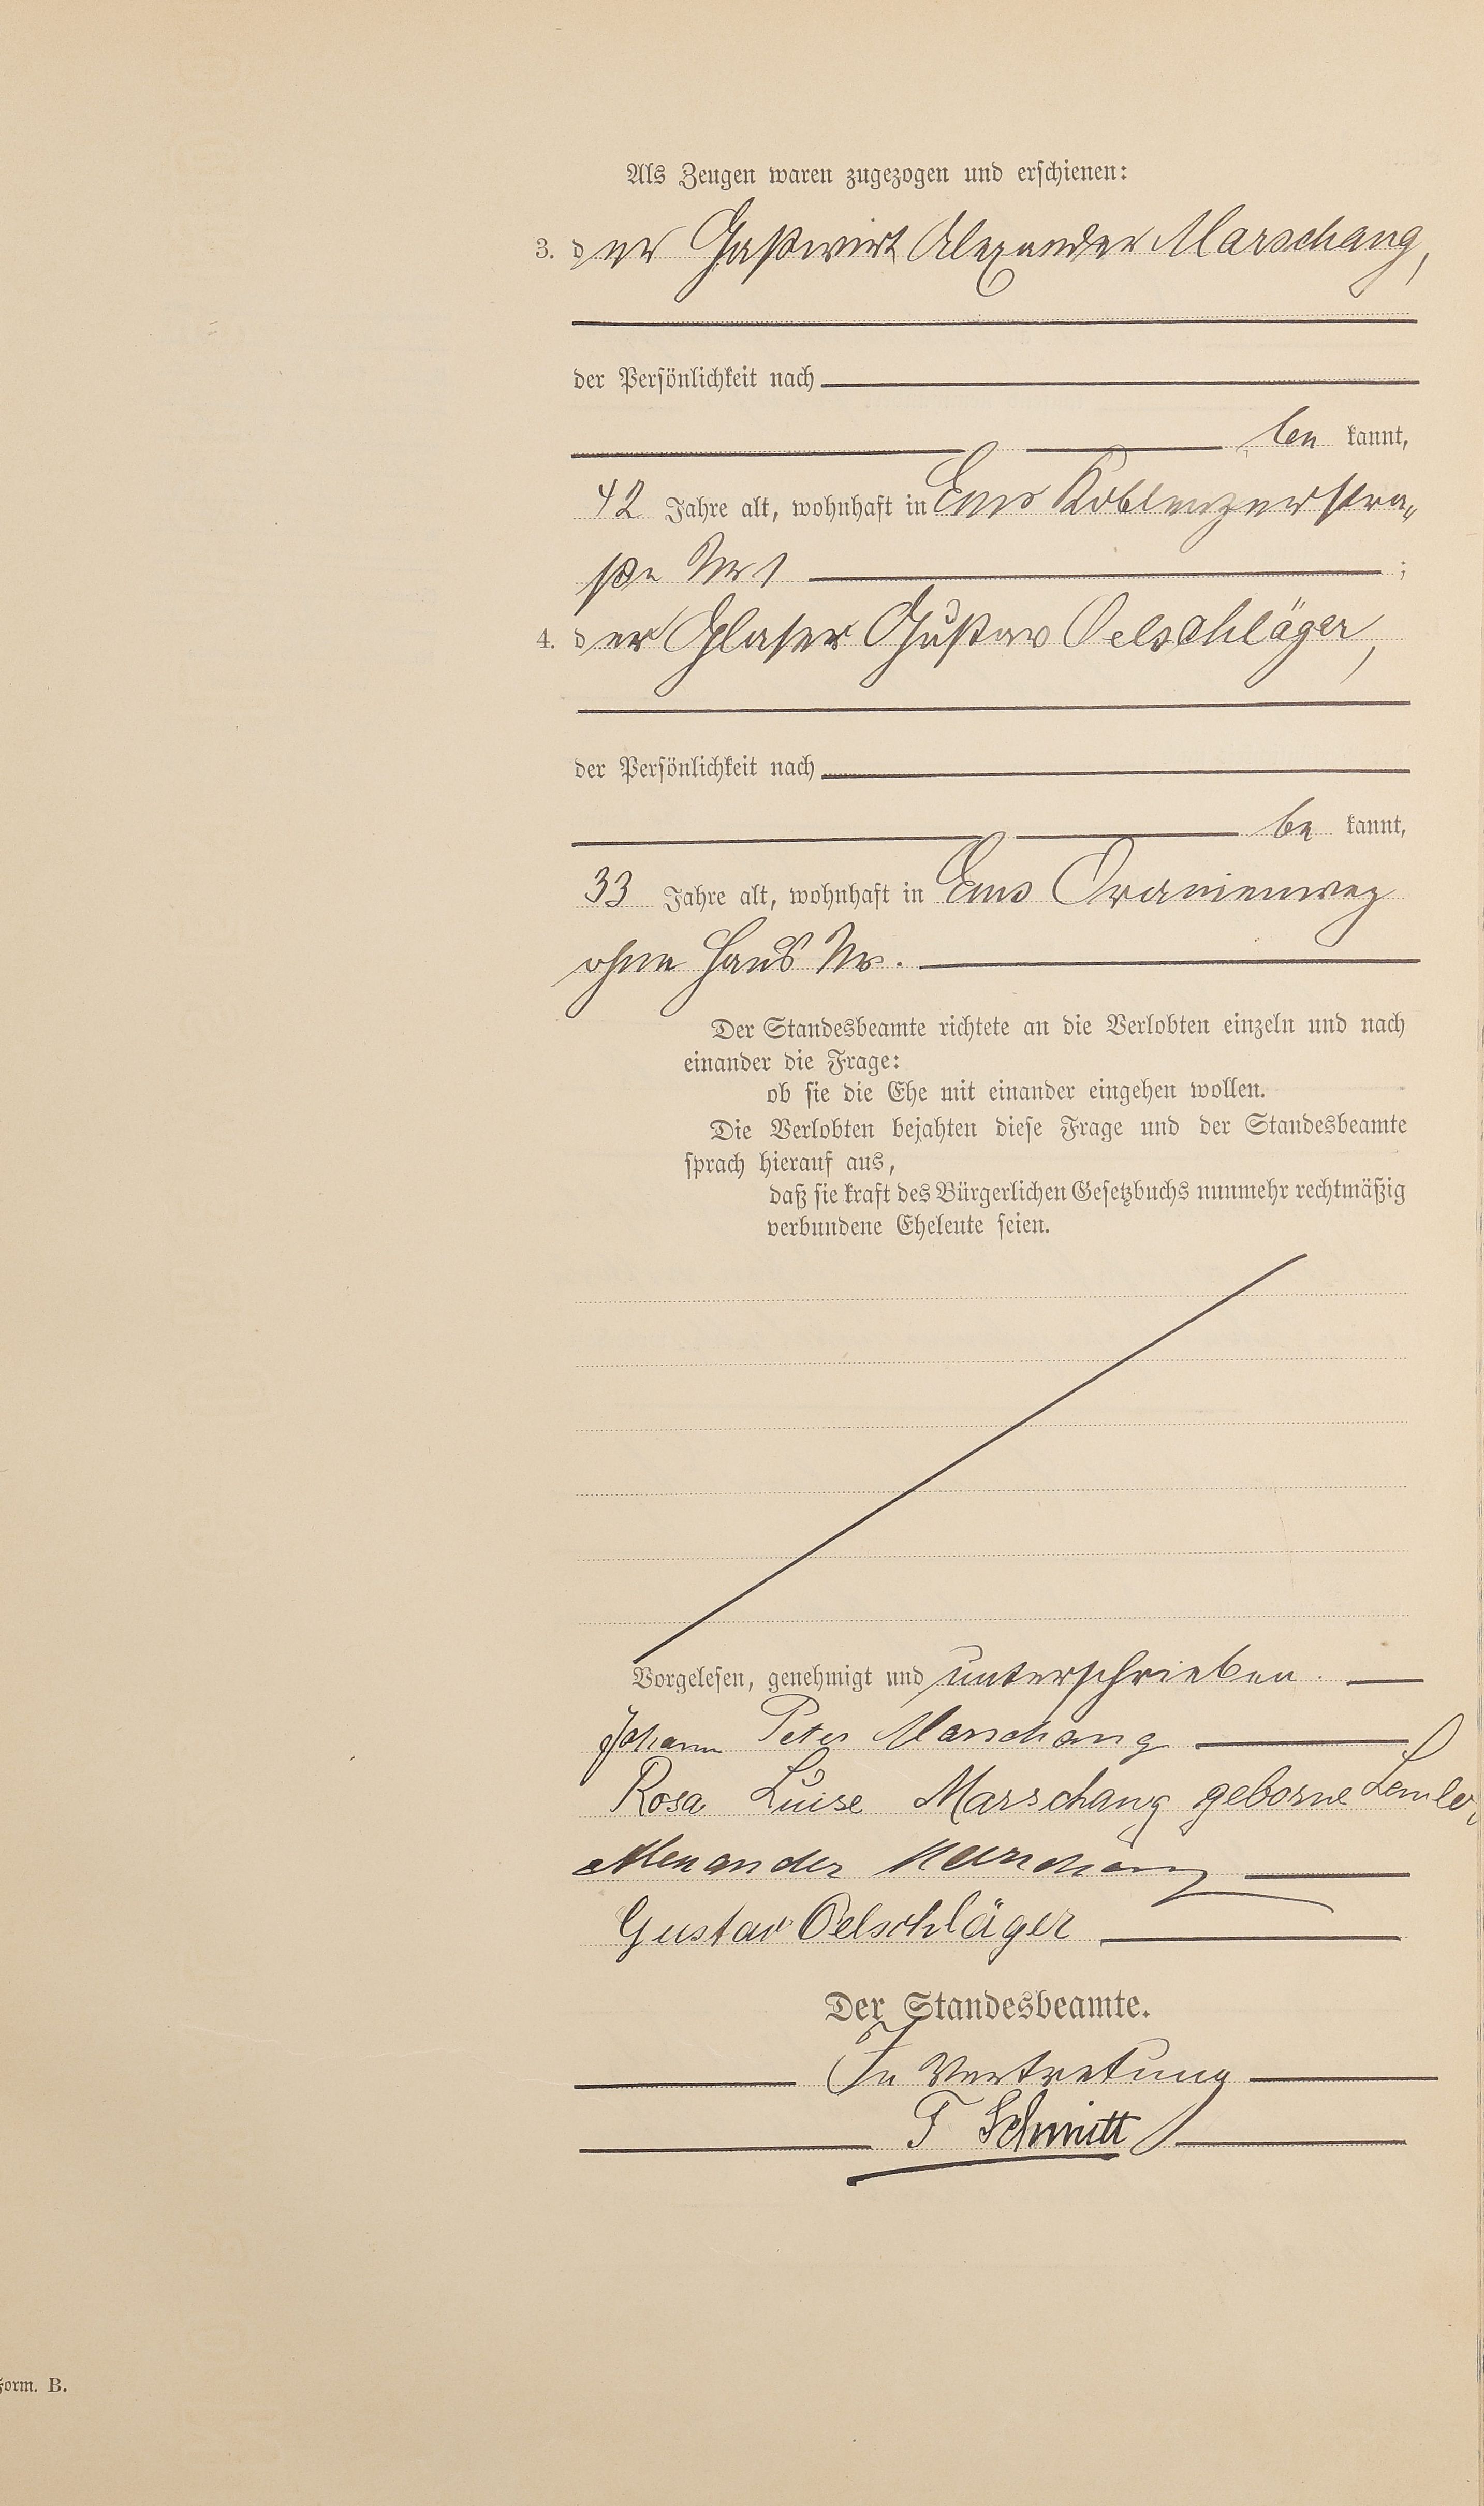 Als Zeugen waren zugezogen und erschienen:
3. der Gastwirt Alexander Marschang,
der Persönlichkeit nach
be kannt,
42 Jahre alt, wohnhaft in Ems Koblenzerstra„
ße Nr 1 ;
4. der Glaser Gustav Oelschläger,
der Persönlichkeit nach
be kannt,
33 Jahre alt, wohnhaft in Ems Oranienweg
ohne Haus Nr.
Der Standesbeamte richtete an die Verlobten einzeln und nach
einander die Frage:
ob sie die Ehe mit einander eingehen wollen.
Die Verlobten bejahten diese Frage und der Standesbeamte
sprach hierauf aus,
daß sie kraft des Bürgerlichen Gesetzbuchs nunmehr rechtmäßig
verbundene Eheleute seien.
Vorgelesen, genehmigt und unterschrieben.
Johann Peter Marschang
Rosa Luise Marschang geborne
Alexander Marschang
Gustav Oelschläger
Der Standesbeamte.
In Vertretung
Schmitt
Form. B.